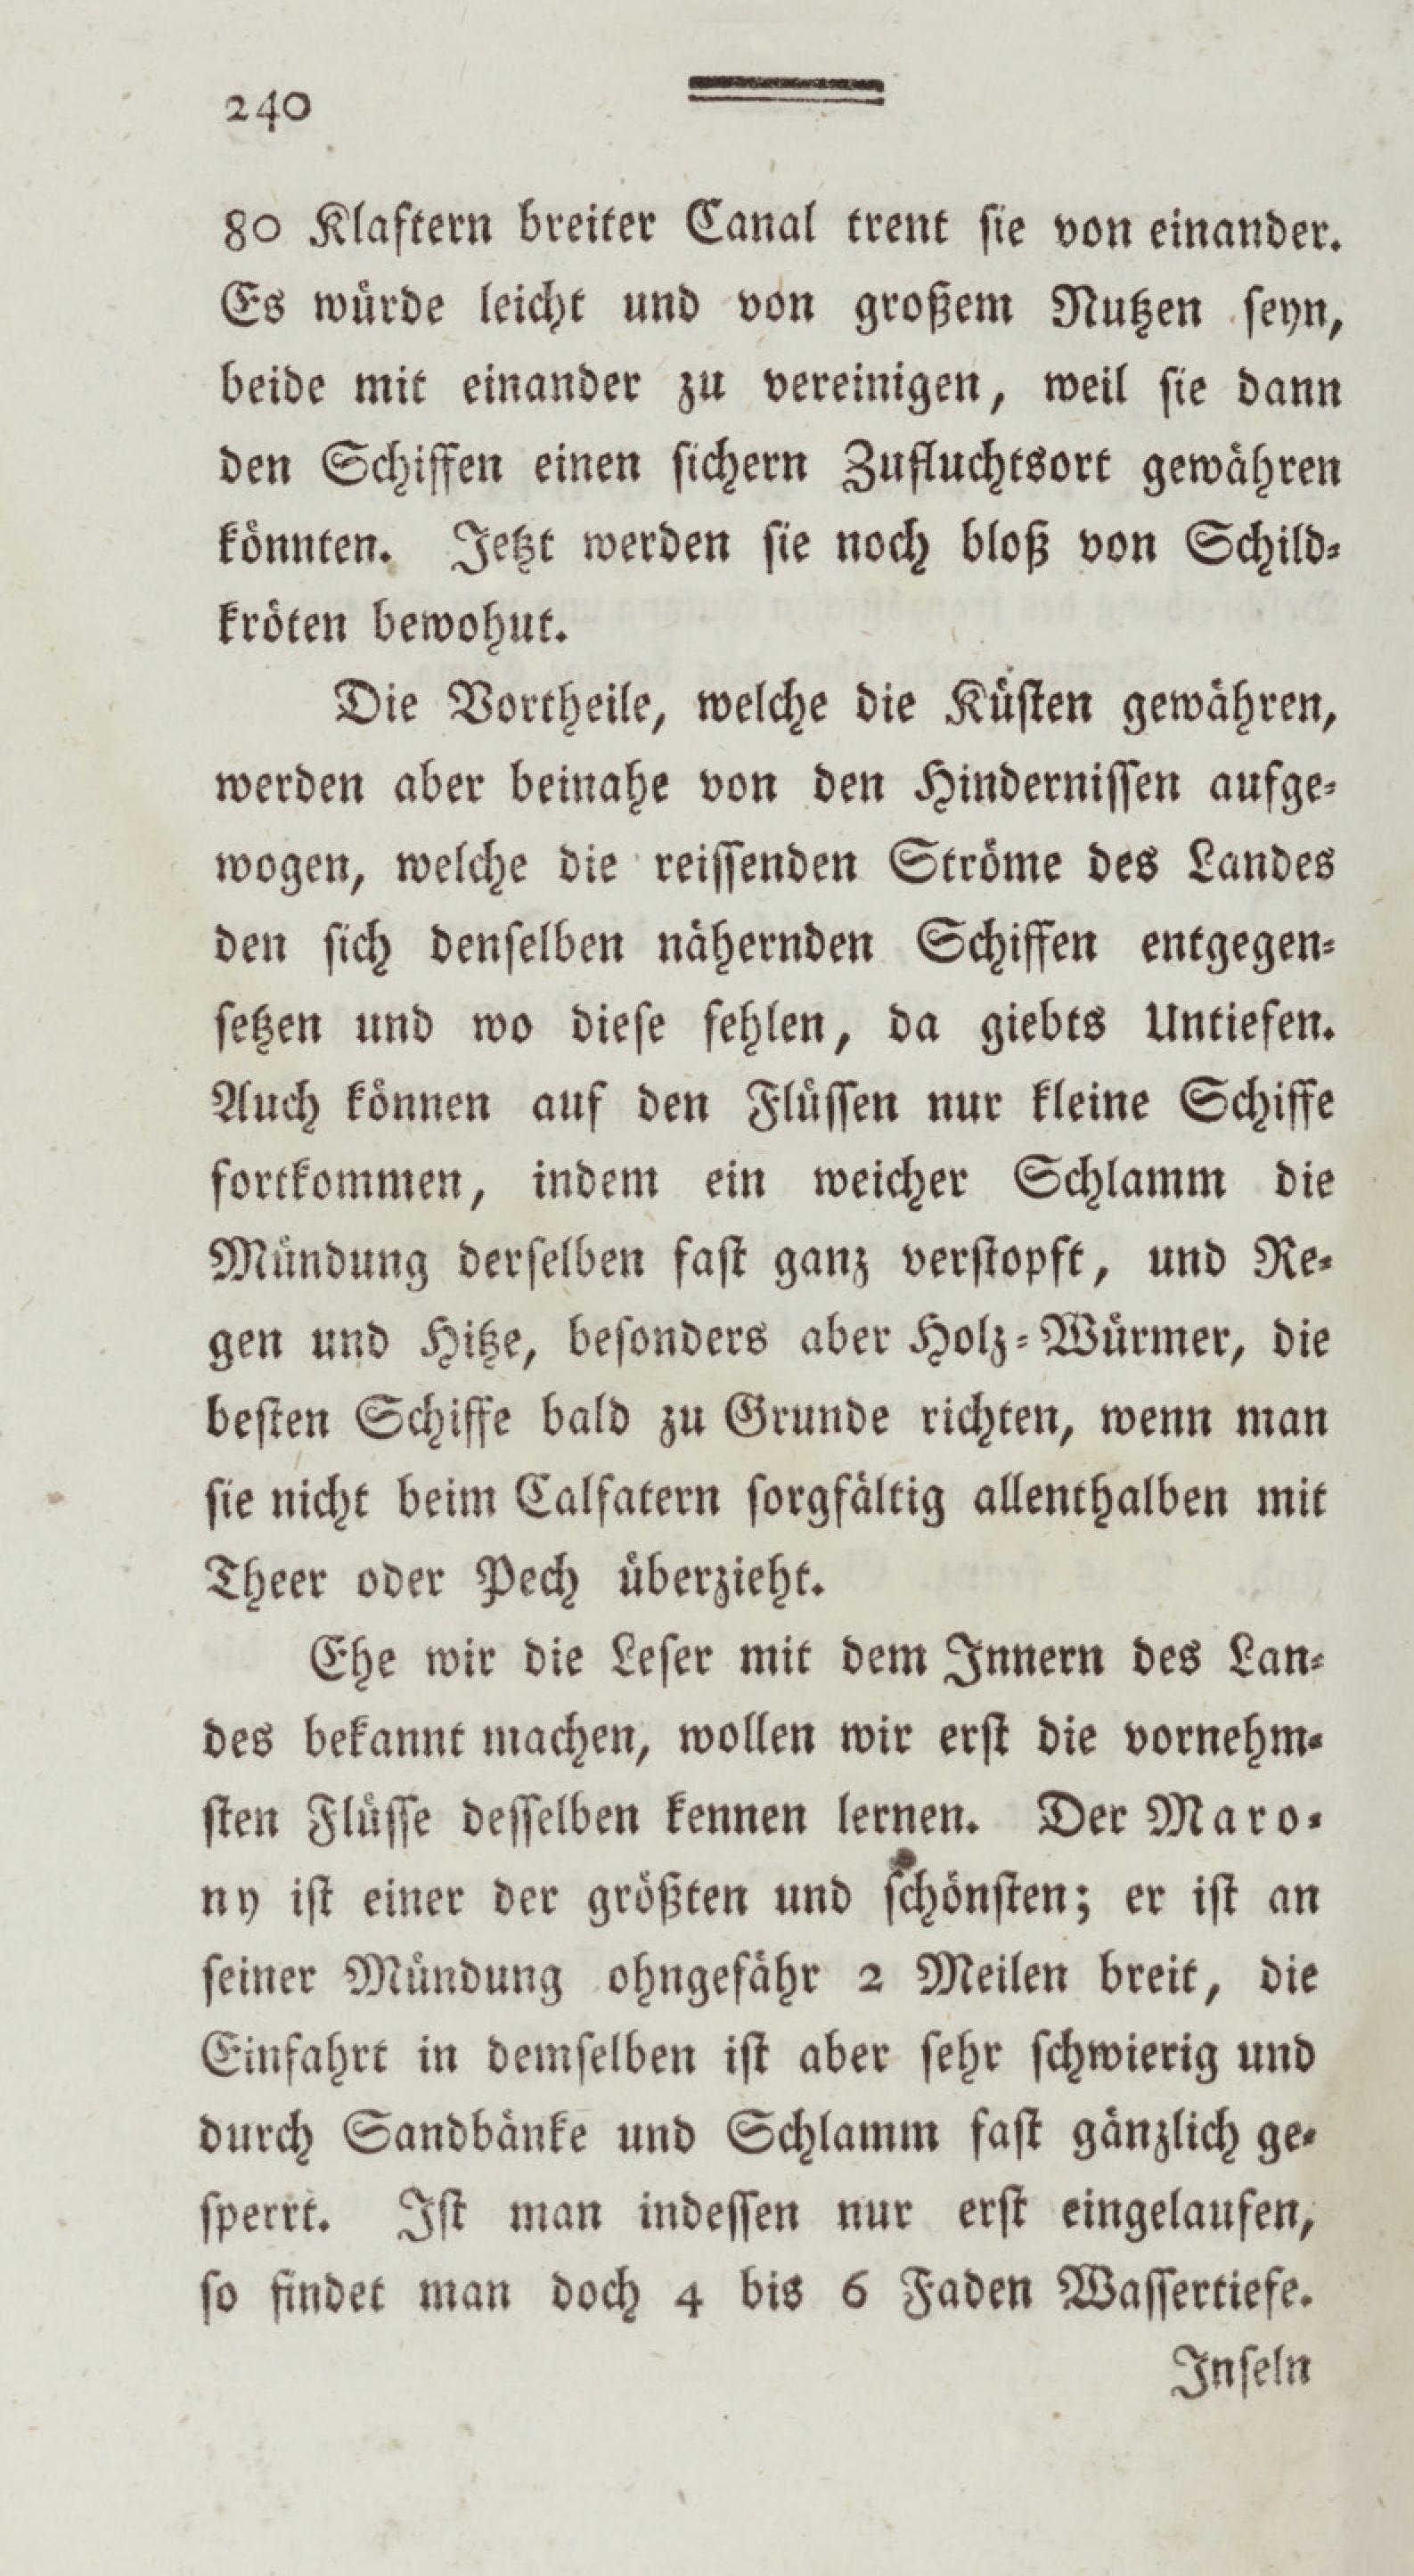 240
80 Klaftern breiter Canal trent ſie von einander.
Es wuͤrde leicht und von großem Nutzen ſeyn,
beide mit einander zu vereinigen, weil ſie dann
den Schiffen einen ſichern Zufluchtsort gewaͤhren
koͤnnten. Jetzt werden ſie noch bloß von Schild⸗
kroͤten bewohut.
Die Vortheile, welche die Kuͤſten gewaͤhren,
werden aber beinahe von den Hinderniſſen aufge⸗
wogen, welche die reiſſenden Stroͤme des Landes
den ſich denſelben naͤhernden Schiffen entgegen⸗
ſetzen und wo dieſe fehlen, da giebts Untiefen.
Auch koͤnnen auf den Fluͤſſen nur kleine Schiffe
fortkommen, indem ein weicher Schlamm die
Muͤndung derſelben faſt ganz verſtopft, und Re⸗
gen und Hitze, beſonders aber Holz⸗Wuͤrmer, die
beſten Schiffe bald zu Grunde richten, wenn man
ſie nicht beim Calfatern ſorgfaͤltig allenthalben mit
Theer oder Pech uͤberzieht.
Ehe wir die Leſer mit dem Innern des Lan⸗
des bekannt machen, wollen wir erſt die vornehm⸗
ſten Fluͤſſe deſſelben kennen lernen. Der Maro⸗
ny iſt einer der groͤßten und ſchoͤnſten; er iſt an
ſeiner Muͤndung ohngefaͤhr 2 Meilen breit, die
Einfahrt in demſelben iſt aber ſehr ſchwierig und
durch Sandbaͤnke und Schlamm faſt gaͤnzlich ge⸗
ſperrt. Iſt man indeſſen nur erſt eingelaufen,
ſo findet man doch 4 bis 6 Faden Waſſertiefe.
Inſeln